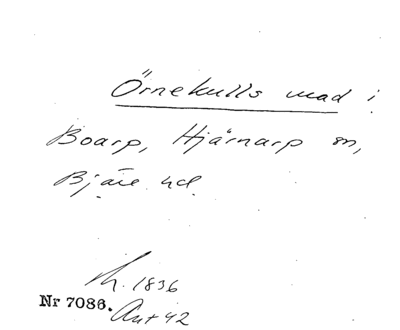 Örnekulls mad i
Boarp, Hjärnarp sn,
Bjäre hd.
1836
Nr 7086. Ant 42